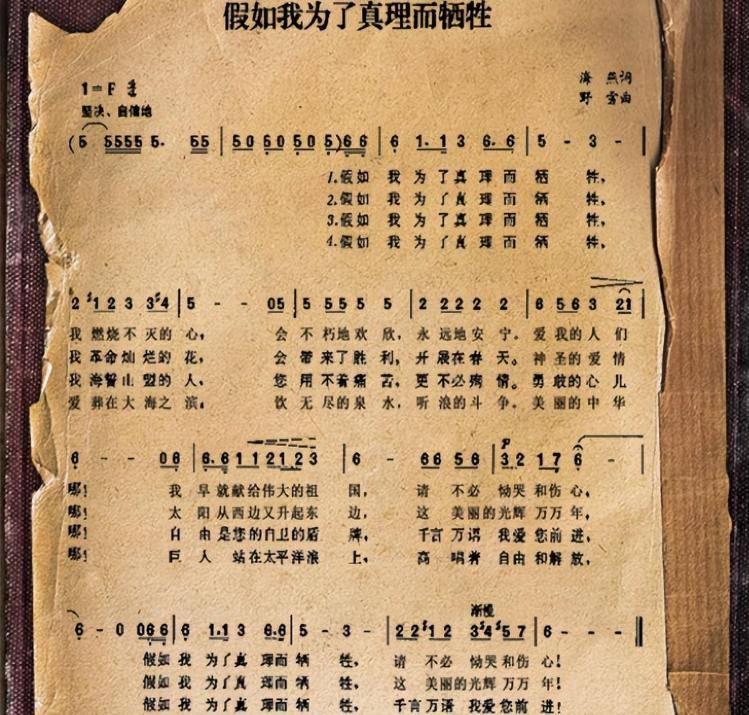 假如我为了真理而牺牲
1=F
海燕词
坚决、自信地
野雾曲
(5 5555 5. 55 | 50 50 50 50 5)66 | 6 1.1 3 6.6 | 5 - 3 - |
1.假如 我 为 了 真 理 而 牺 牲，
2.假如 我 为 了 真 理 而 牺 牲，
3.假如 我 为 了 真 理 而 牺 牲，
4.假如 我 为 了 真 理 而 牺 牲，
2 #1 2 3 3#4 | 5 - - 05 | 5 55 5 5 | 2 22 2 2 | 6 56 3 21 |
我 燃烧不 灭的 心， 会 不 朽地 欢 欣，永 远地 安 宁。爱 我的 人 们
我 革命 灿 烂的 花， 会 带来了 胜 利，开 展在 春 天。神 圣的 爱 情
我 海誓 山 盟的 人， 您 用 不着 痛 苦，更 不必 殉 情。勇 敢的 心 儿
爱 葬在 大 海之 滨， 饮 无 尽的 泉 水，听 浪的 斗 争。美 丽的 中 华
6 - - 06 | 6.6 11 21 23 | 6 - 66 56 | 32 17 6 -
哪！ 我 早 就献给伟大的祖 国， 请 不必 恸哭 和伤 心，
哪！ 太 阳从西边又升起东 边， 这 美丽的光辉 万万 年，
哪！ 自 由是您的自卫的盾 牌， 千言万语 我爱您前 进，
哪！ 巨 人 站在太平洋浪 上， 高 唱着 自由和解 放，
渐慢
6 - 0 066 | 6 1.1 3 6.6 | 5 - 3 - | 22 #12 3#4 #57 | 6 - -
假如 我 为了真 理而 牺 牲， 请 不必 恸哭和伤 心！
假如 我 为了真 理而 牺 牲， 这 美丽的光辉 万万 年！
假如 我 为了真 理而 牺 牲， 千言万语 我爱您前 进！